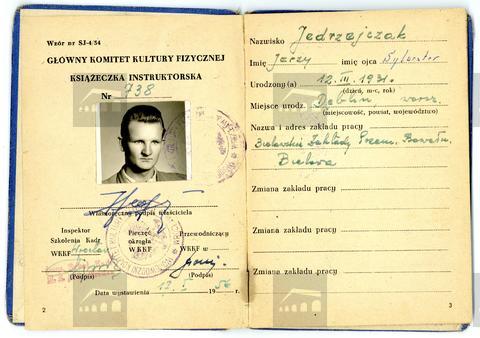 Wzór nr SJ-4/54
GŁÓWNY KOMITET KULTURY FIZYCZNEJ
KSIĄŻECZKA INSTRUKTORSKA
Nr 738
Własnoręczny podpis właściciela
Inspektor Szkolenia Kadr
WKKF Wrocław
(Podpis)
Pieczęć okrągła WKKF
Przewodniczący
WKKF w
(Podpis)
Data wystawienia 12.I 1956 r.
2
Nazwisko Jedrzejczak
Imię Jerzy imię ojca Sylwester
Urodzony(a) 12.III.1931.
(dzień, m-c, rok)
Miejsce urodz. Dęblin warsz.
(miejscowość, powiat, województwo)
Nazwa i adres zakładu pracy
Bielawskie Zakłady Przem. Bawełn.
Bielawa
Zmiana zakładu pracy
Zmiana zakładu pracy
Zmiana zakładu pracy
3